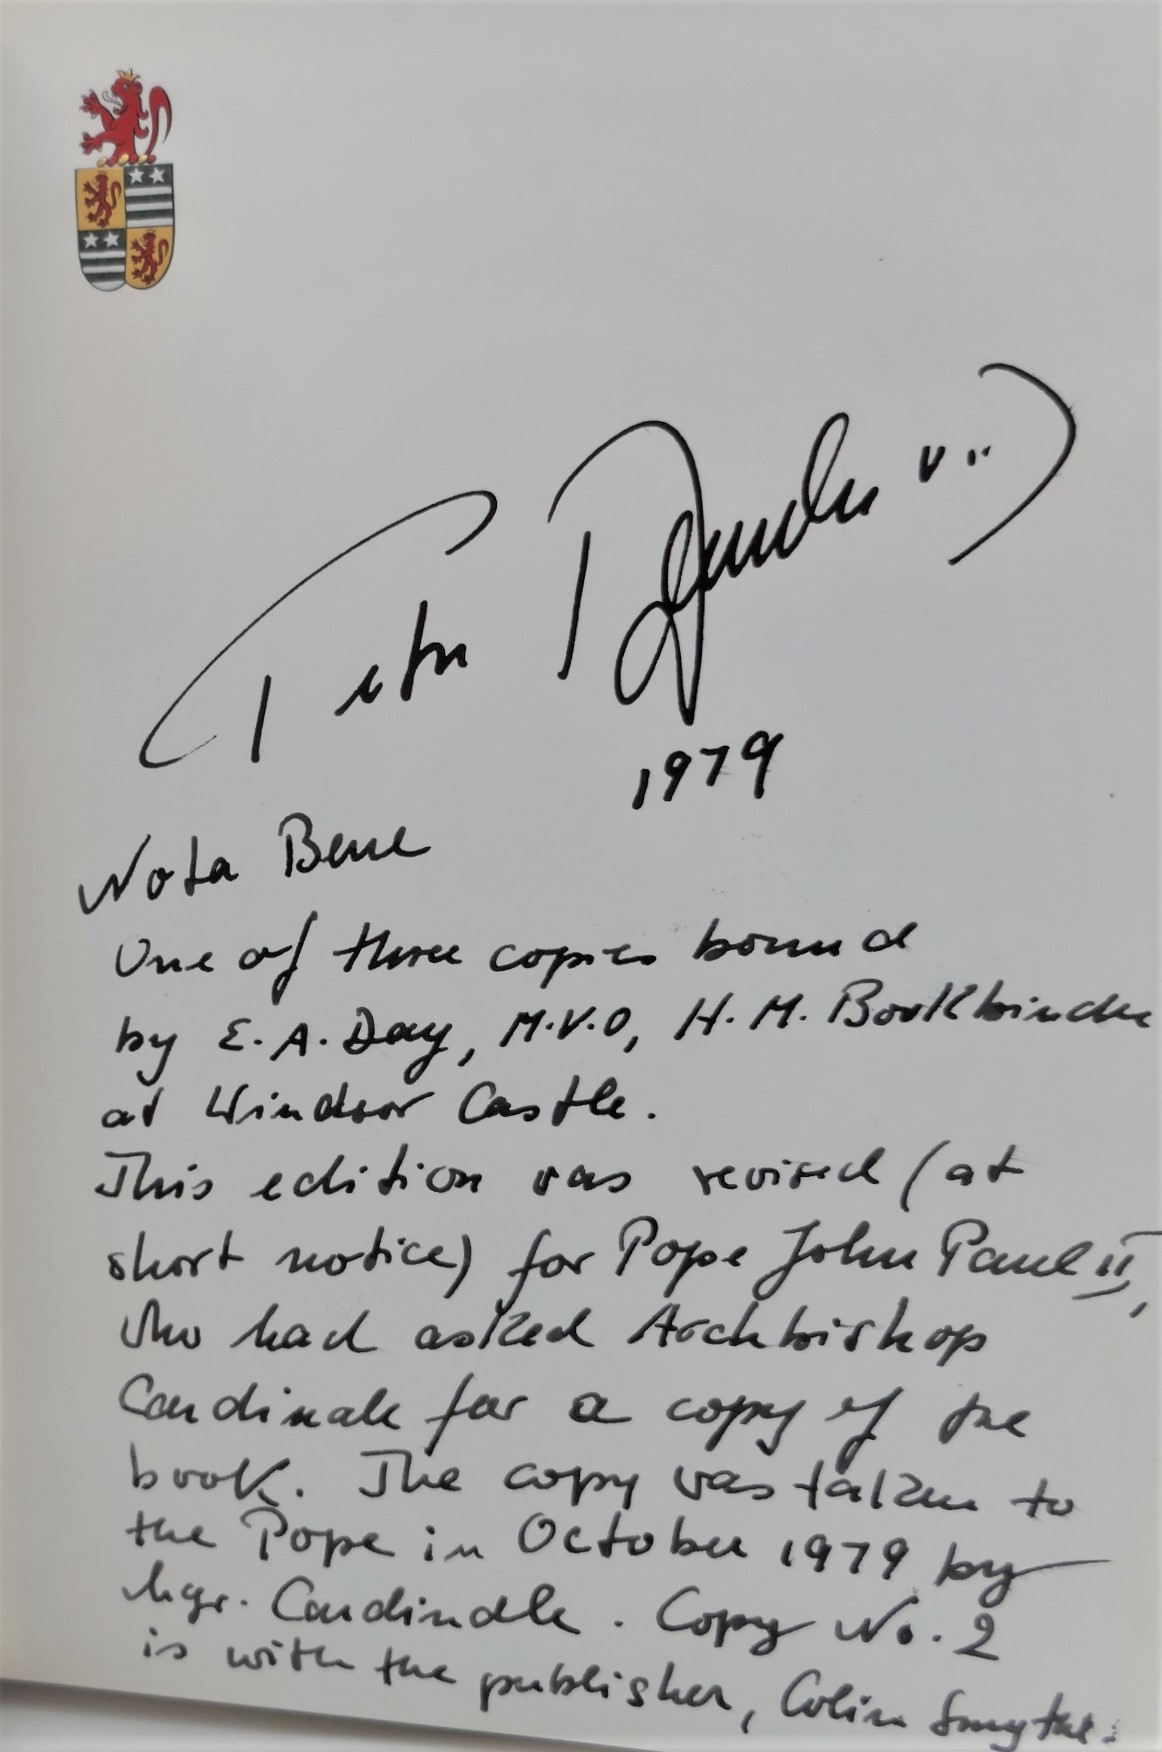 Peter Bander v.
1979
Nota Bene
One of three copies bound
by E. A. Day, M.V.O, H. M. Bookbinder
at Windsor Castle.
This edition was revised (at
short notice) for Pope John Paul II,
who had asked Archbishop
Cardinale for a copy of the
book. The copy was taken to
the Pope in October 1979 by
Mgr. Cardinale. Copy No. 2
is with the publisher, Colin Smythe.